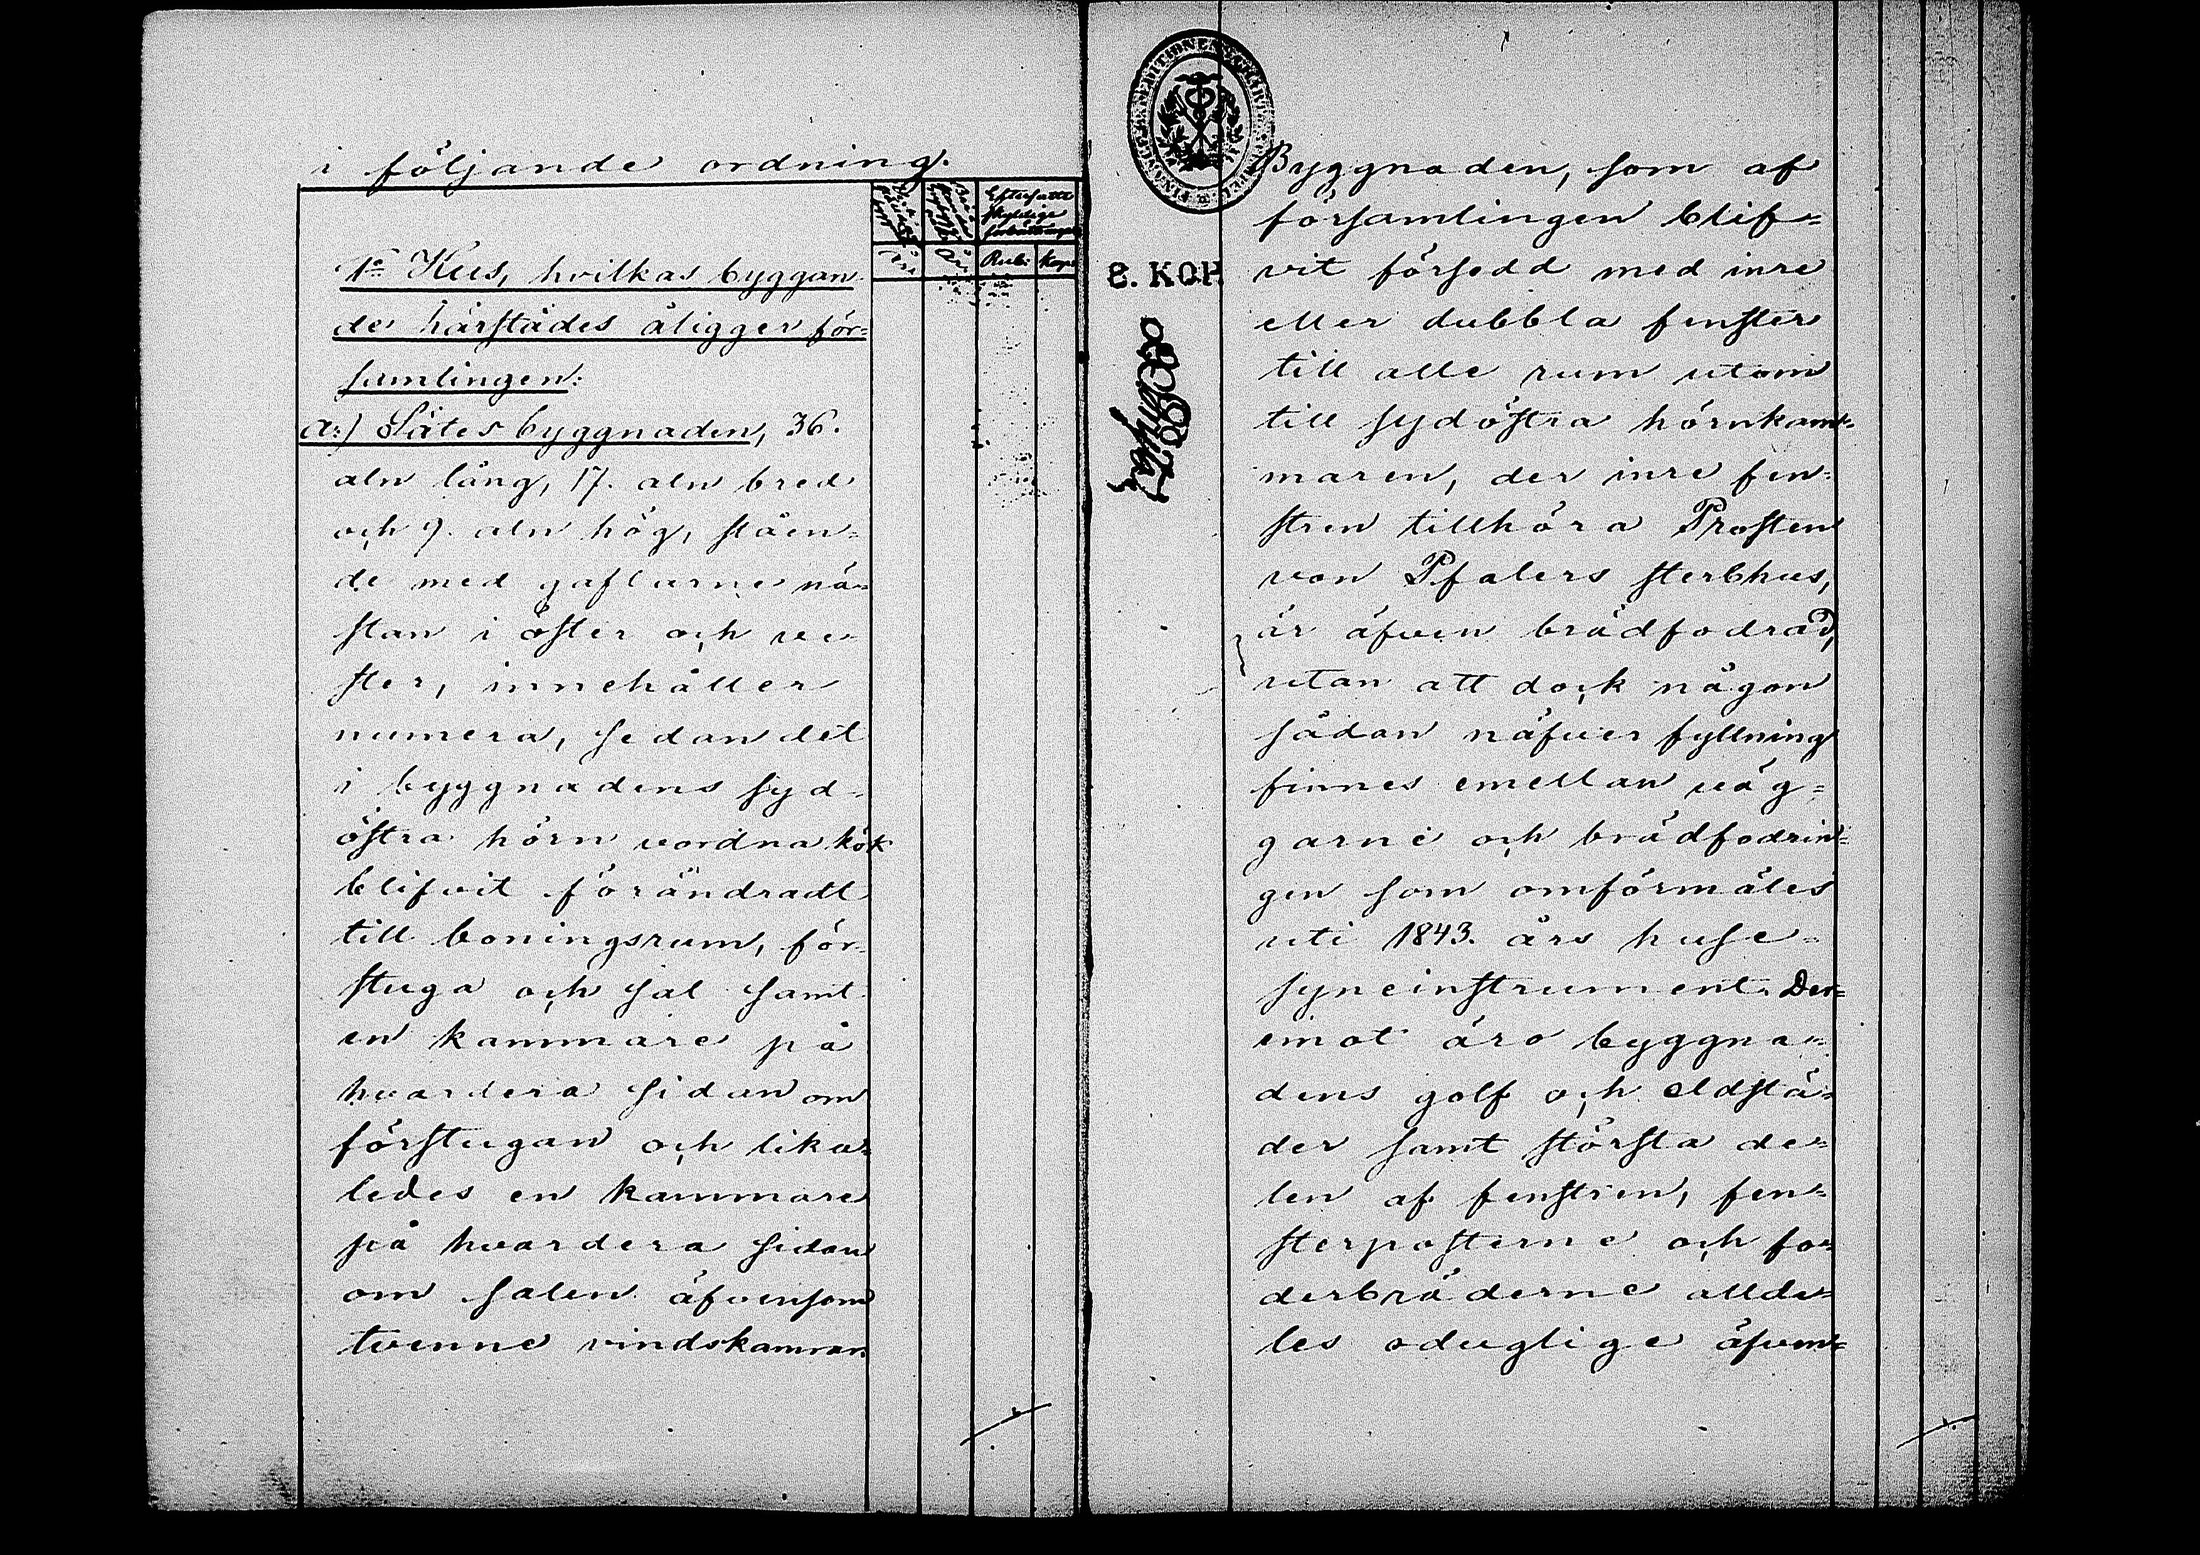 i följande ordning.
Eftersatte
skyldige
förbättringar
Års Års Rub: Kop:
1o Hus, hvilkas byggan-
de härstädes åligger för-
samlingen:
a:) Sätesbyggnaden, 36.
aln lång, 17. aln bred
och 9. aln hög, ståen-
de med gaflarne nä-
stan i öster och ve-
ster, innehåller
numera, sedan det
i byggnadens syd-
östra hörn vordna kök
blifvit förändradt
till boningsrum, för-
stuga och sal samt
en kammare på
hvardera sidan om
förstugan och lika-
ledes en kammare
på hvardera sidan
om salen äfvensom
tvenne vindskamrar.
8. KOP.
Byggnaden, som af
församlingen blif-
vit försedd med inre
eller dubbla fenster
till alle rum utom
till sydöstra hörnkam-
maren, der inre fen-
stren tillhöra Prosten
von Pfalers sterbhus,
är äfven brädfodrad,
utan att dock någon
sådan näfver fyllning
finnes emellan väg-
garne och brädfodrin-
gen som omförmäles
uti 1843. års huse-
syneinstrument. Der-
emot äro byggna-
dens golf och eldstä-
der samt största de-
len af fenstren, fen-
sterposterne och fo-
derbräderne allde-
les oduglige äfven-